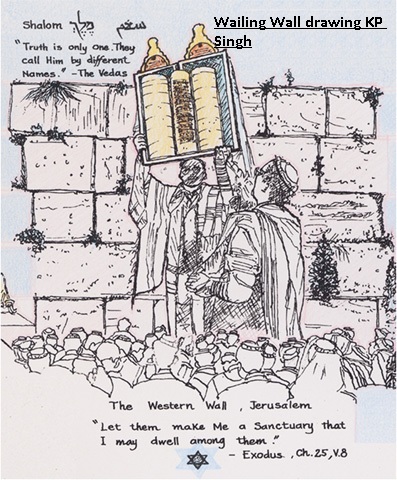 Wailing Wall drawing KP
Singh
Shalom
"Truth is only one. They
call Him by different
Names." - The Vedas
The Western Wall, Jerusalem
"Let them make Me a Sanctuary that
I may dwell among them."
- Exodus, Ch.25, V.8